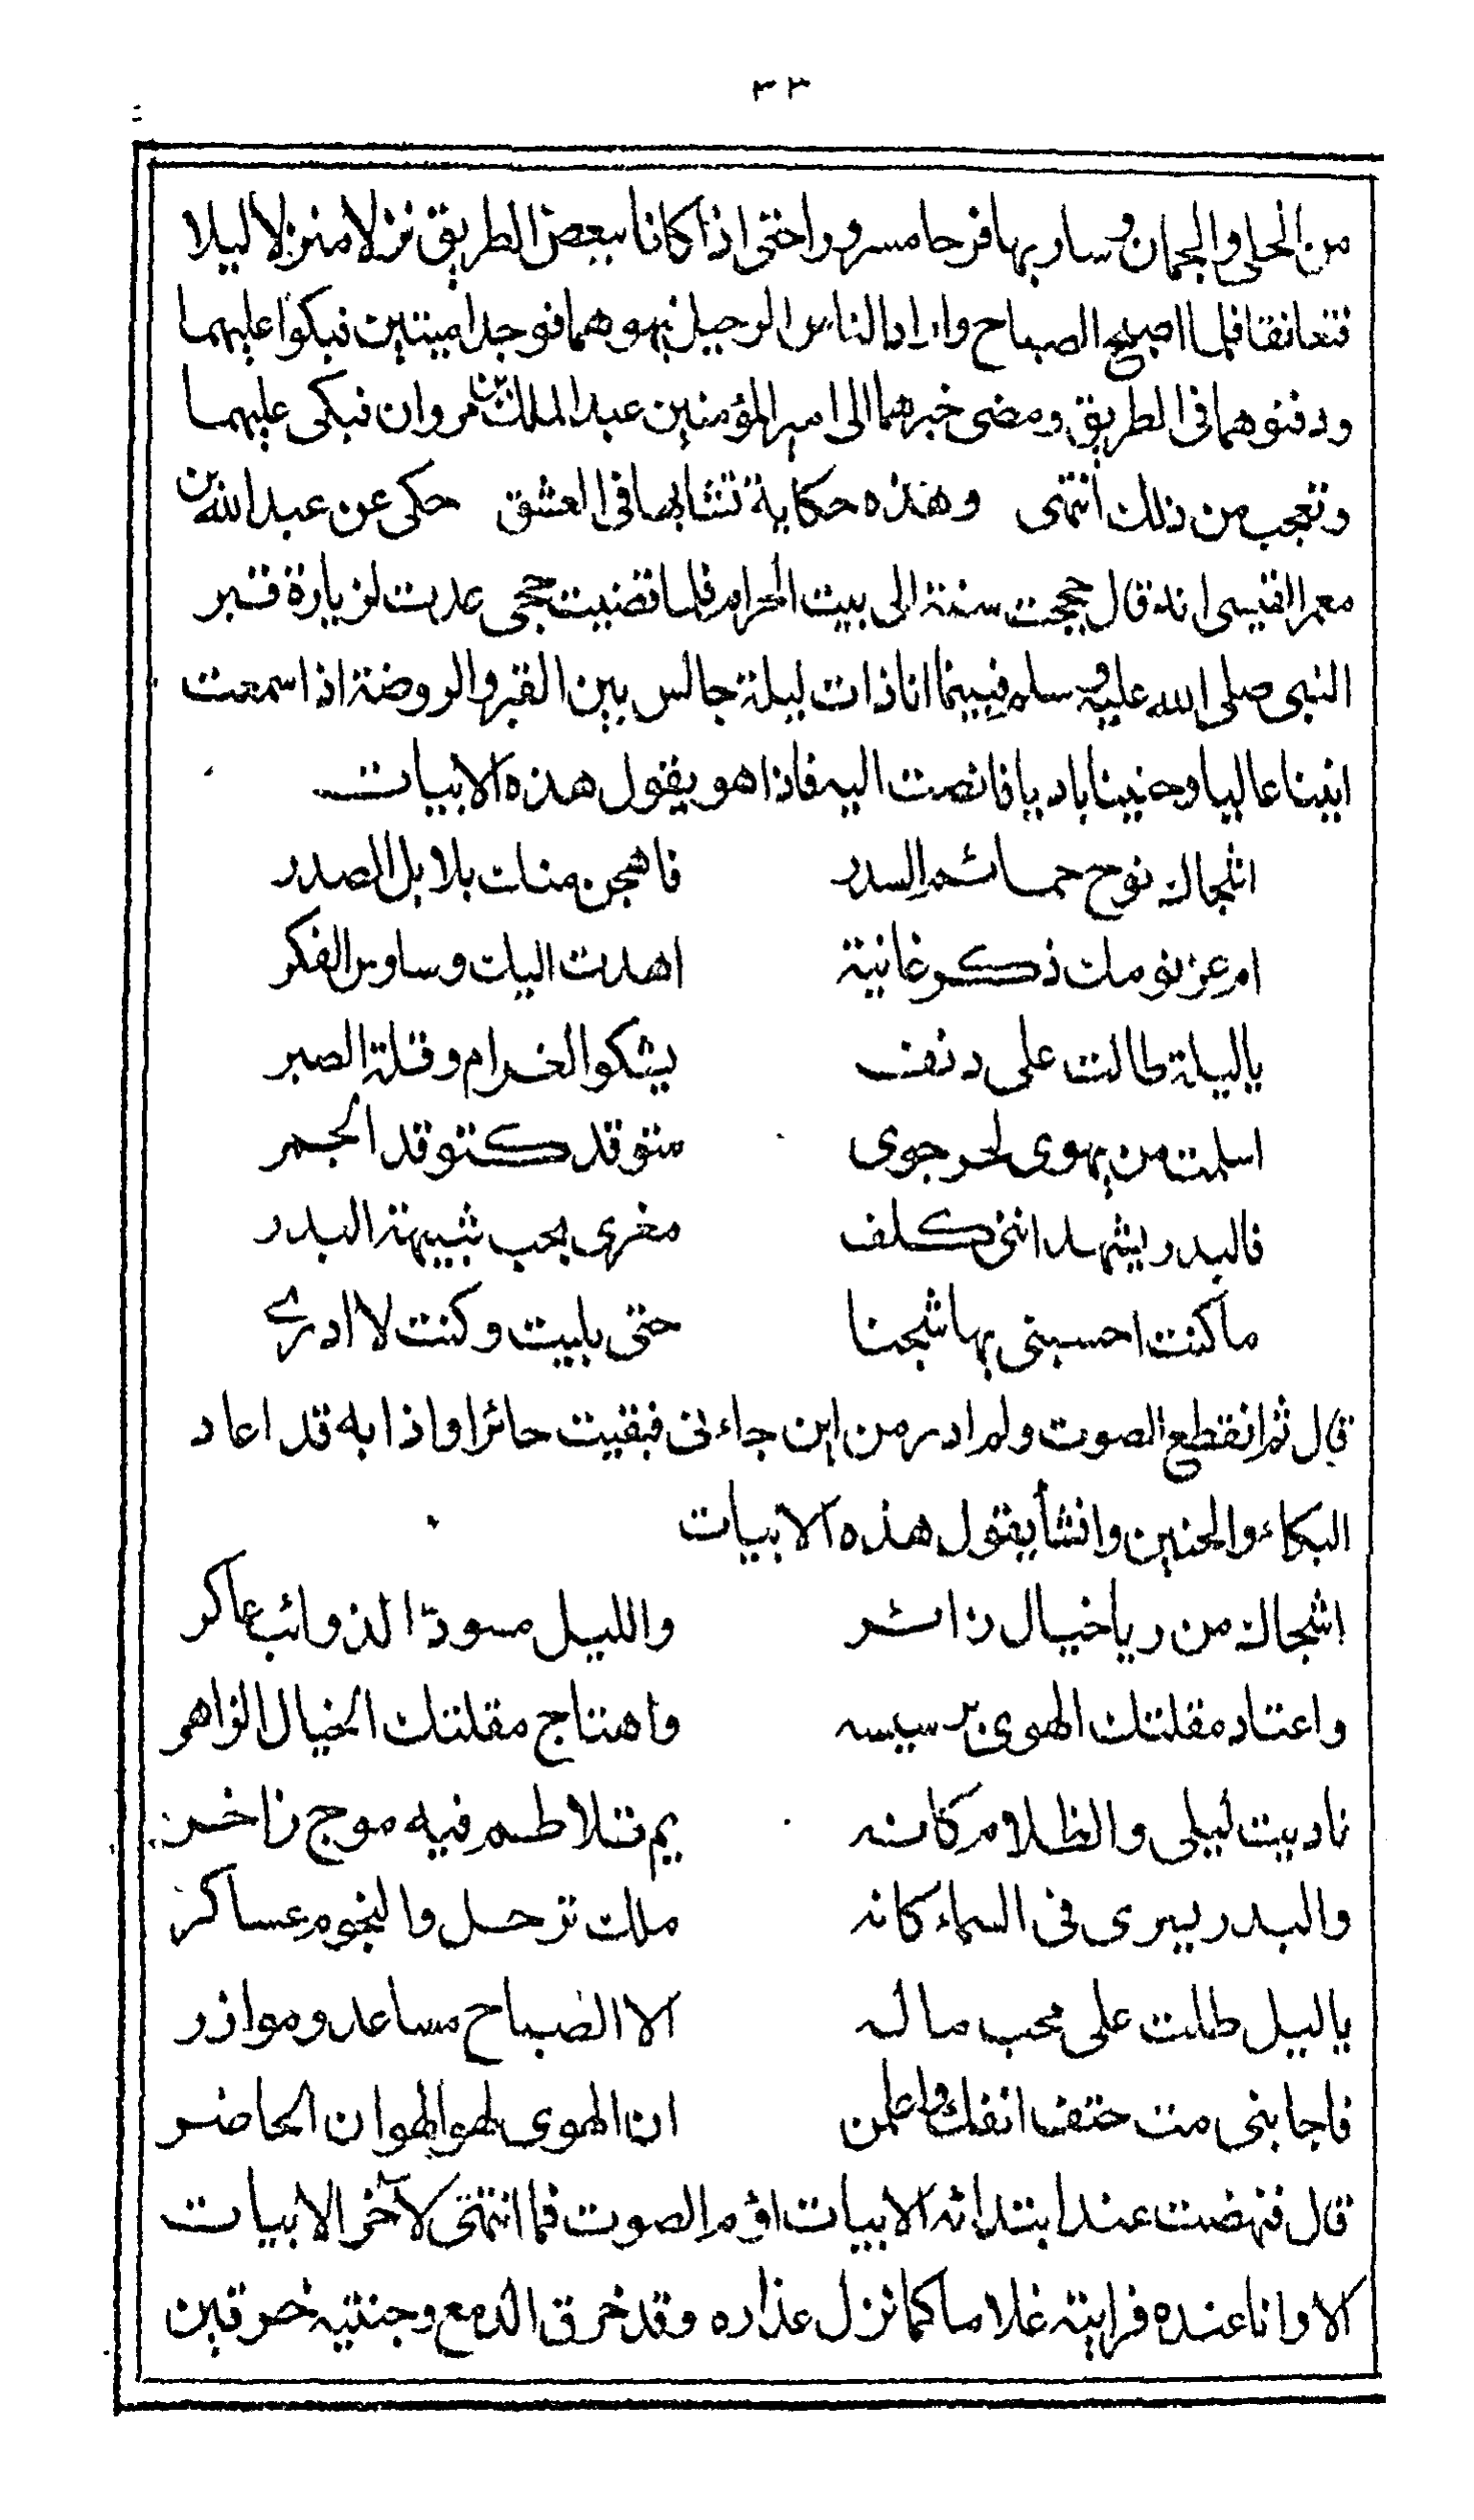 ٣٢
من الحلى والجمان وسار بها فرحا مسرورا حتى اذا كانا ببعض الطريق نزلا منزلا ليلا
فتعانقا فلما اصبح الصباح واراد الناس الرحيل نبهوهما فوجدا ميتين فبكوا عليهما
ودفنوهما فى الطريق ومضى خبرهما الى امير المؤمنين عبد الملك بن مروان فبكى عليهما
وتعجب من ذلك انتهى وهذه حكاية تشابهها فى العشق حكى عن عبد الله بن
معمر القيسى انه قال حججت سنة الى بيت الحرام فلما قضيت حجى عدت لزيارة قبر
النبى صلى الله عليه وسلم فبينما انا ذات ليلة جالس بين القبر والروضة اذا سمعت
انينا عاليا وحنينا باديا فانصت اليه فاذا هو يقول هذه الابيات
اشجاك نوح حمائم السدر فاهجن منك بلابل الصدر
ام عز نومك ذكر غانية اهدت اليك وساوس الفكر
ياليلة طالت على دنف يشكوا الغرام وقلة الصبر
اسلمت من يهوى لحر جوى متوقد كتوقد الجمر
فالبدر يشهد اننى كلف مغرى بحب شبيهة البدر
ما كنت احسبنى بها شجنا حتى بليت وكنت لا ادرى
قال ثم انقطع الصوت ولم ادر من اين جاءنى فبقيت حائرا واذا به قد اعاد
البكاء والحنين وانشأ يقول هذه الابيات
اشجاك من ريا خيال زائر والليل مسودّ الذوائب عاكر
واعتاد مقلتك الهوى برسيسه واهتاج مقلتك الخيال الزاهر
ناديت ليلى والظلام كانه يم تلاطم فيه موج زاخر
والبدر يسرى فى السماء كانه ملك ترحل والنجوم عساكر
ياليل طلت على محب ماله الا الصباح مساعد وموازر
فاجابنى مت حتف انفك واعلمن ان الهوى لهو الهوان الحاضر
قال فنهضت عند ابتدائه الابيات اؤم الصوت فما انتهى لآخر الابيات
الا وانا عنده فرايته غلاما كما نزل عذاره وقد خرق الدمع وجنتيه خرقين